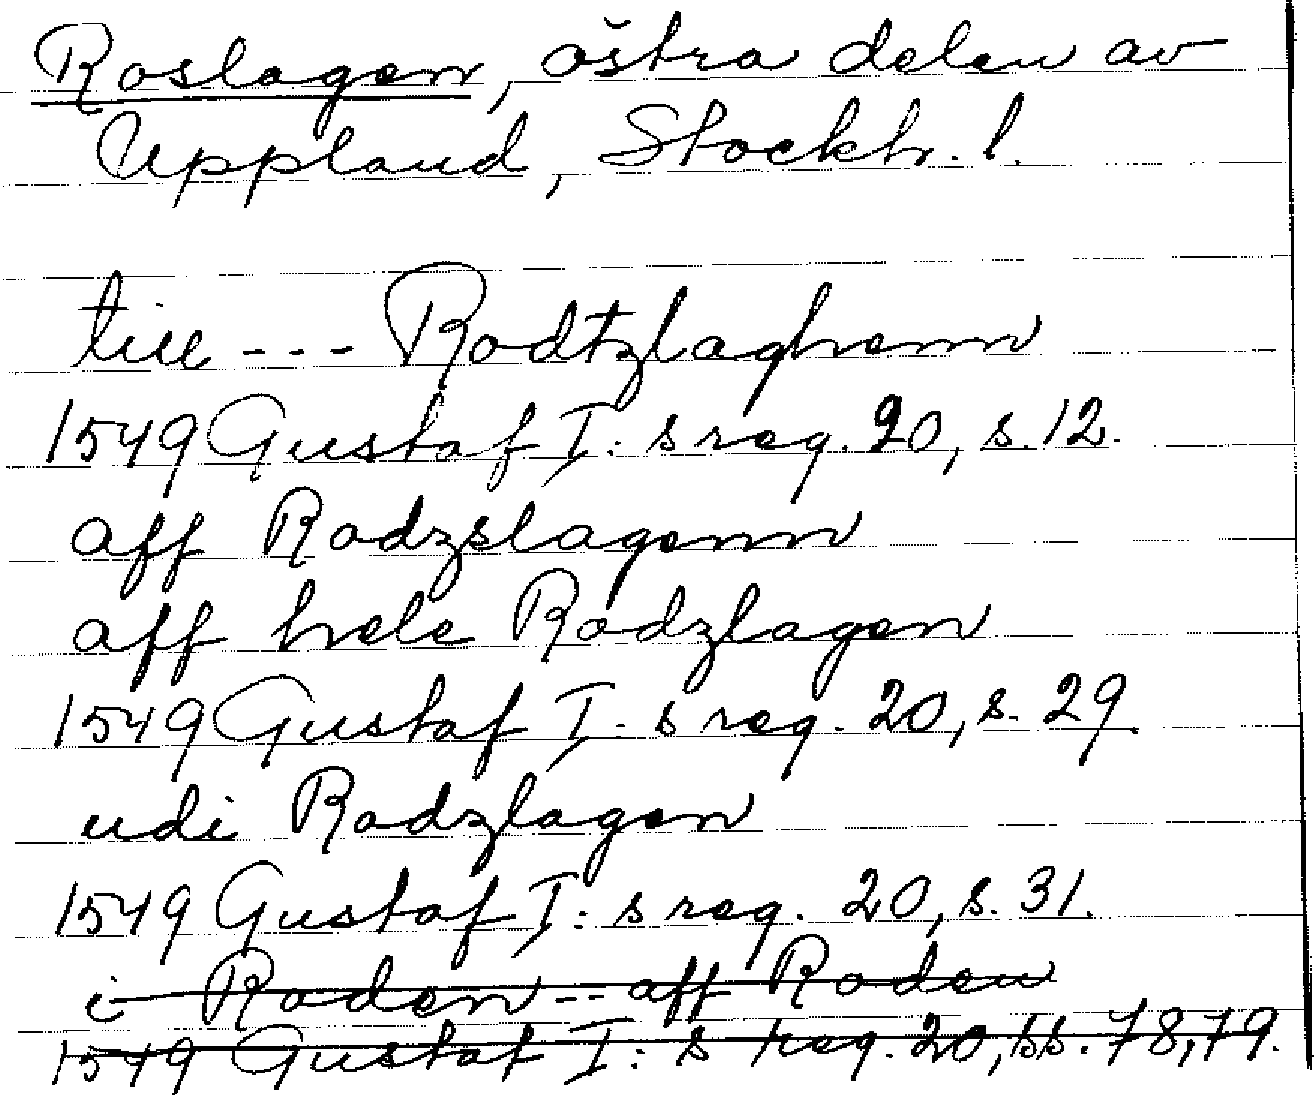 Roslagen, östra delen av
Uppland, Stockh. l.
till --- Rodtzlaghenn
1549 Gustaf I: s reg. 20, s. 12.
aff Rodzslagenn
aff hele Rodzlagen
1549 Gustaf I: s reg. 20, s. 29.
udi Rodzlagen
1549 Gustaf I: s reg. 20, s. 31.
i Roden -- aff Roden
1549 Gustaf I: s reg. 20, ss. 78, 79.